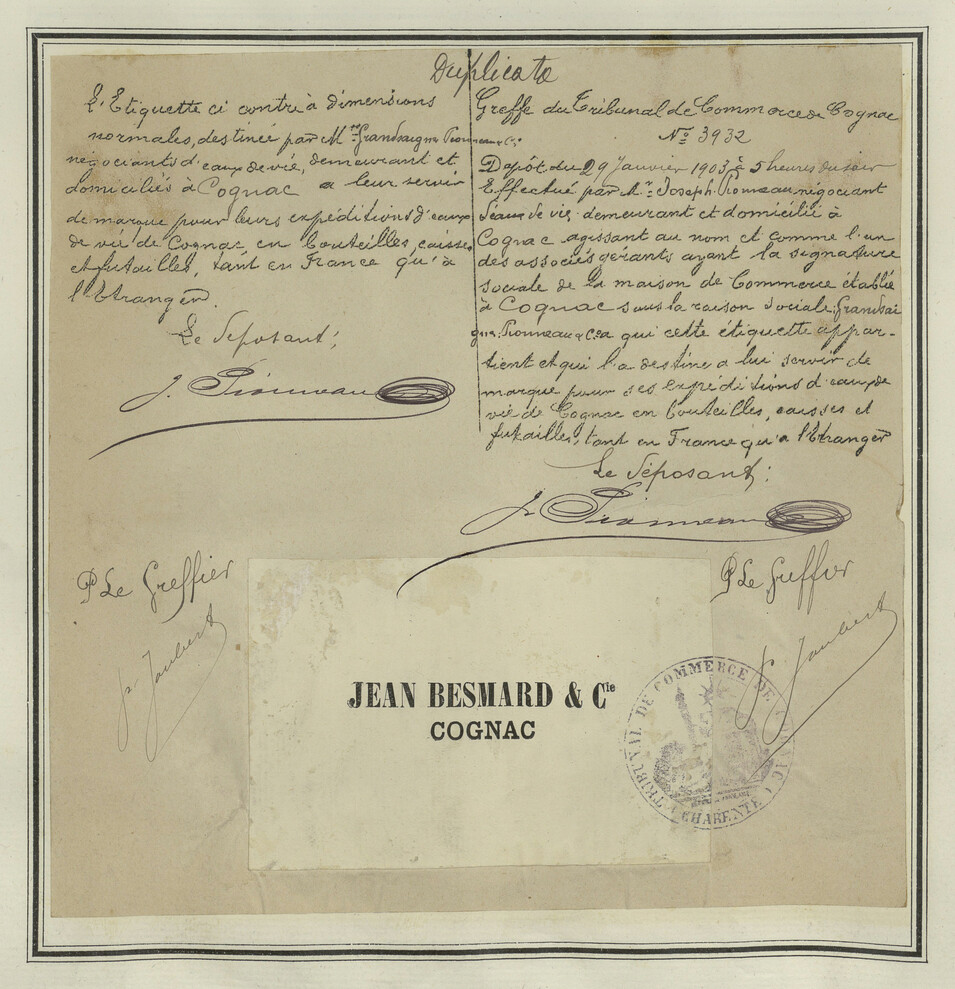 Duplicata
L'Etiquette ci contre à dimensions
normales, destinée par Mrs Grandsaigne Pionneau & Cie
négociants d'eaux de vie, demeurant et
domiciliés à Cognac a leur servir
de marque pour leurs expéditions d'eaux
de vie de Cognac en bouteilles, caisses
et futailles, tant en France qu'à
l'Etranger.
Le Déposant;
J. Pionneau
Greffe du Tribunal de Commerce de Cognac
No 3932
Depôt du 29 Janvier 1903 à 5 heures du soir
Effectué par Mr Joseph Pionneau négociant
d'eaux de vie demeurant et domicilié à
Cognac agissant au nom et comme l'un
des associés gerants ayant la signature
sociale de la maison de Commerce établie
à Cognac sous la raison sociale, Grandsai
gne. Pionneau & Cie a qui cette étiquette appar-
tient et qui l'a destine a lui servir de
marque pour ses expéditions d'eaux de
vie de Cognac en bouteilles, caisses et
futailles, tant en France qu'a l'Etranger
Le Déposant;
J. Pionneau
P Le Greffier
P Le Greffier
JEAN BESMARD & Cie
COGNAC
TRIBUNAL DE COMMERCE DE COGNAC
CHARENTE